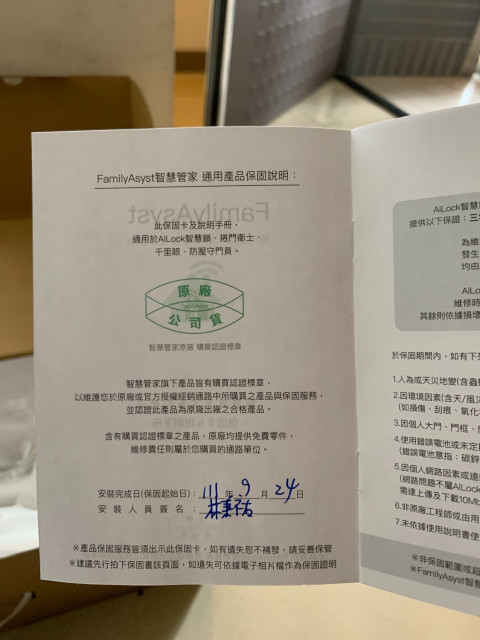 FamilyAsyst智慧管家 通用產品保固說明：
此保固卡及說明手冊，
適用於AiLock智慧鎖、捲門衛士、
千里眼、防壓守門員。
原廠
FamilyAsyst
公司貨
智慧管家原廠 購買認證標章
智慧管家旗下產品皆有購買認證標章，
以維護您於原廠或官方授權經銷通路中所購買之產品與保固服務，
並認證此產品為原廠出廠之合格產品。
含有購買認證標章之產品，原廠均提供免費零件，
維修責任則屬於您購買的通路單位。
安裝完成日(保固起始日)：111年9月24日
安裝人員簽名：林秉佑
※產品保固服務皆須出示此保固卡，如有遺失恕不補發，請妥善保管
※建議先行拍下保固書該頁面，如遺失可依據電子相片檔作為保固證明
AiLock智慧
提供以下保證：三
為維
發生
均由
AiLo
維修時
其餘則依據損壞
於保固期間內，如有下列
1.人為或天災地變(含蟲
2.因環境因素(含天/風災
(如損傷、刮痕、氧化
3.因個人大門、門框、
4.使用錯誤電池或未定期
(錯誤電池意指：碳鋅
5.因個人網路因素或遠
(網路問題不屬AiLock
需達上傳及下載10Mb
6.非原廠工程師或由用
7.未依據使用說明書使
※非保固範圍或超
※FamilyAsyst智慧